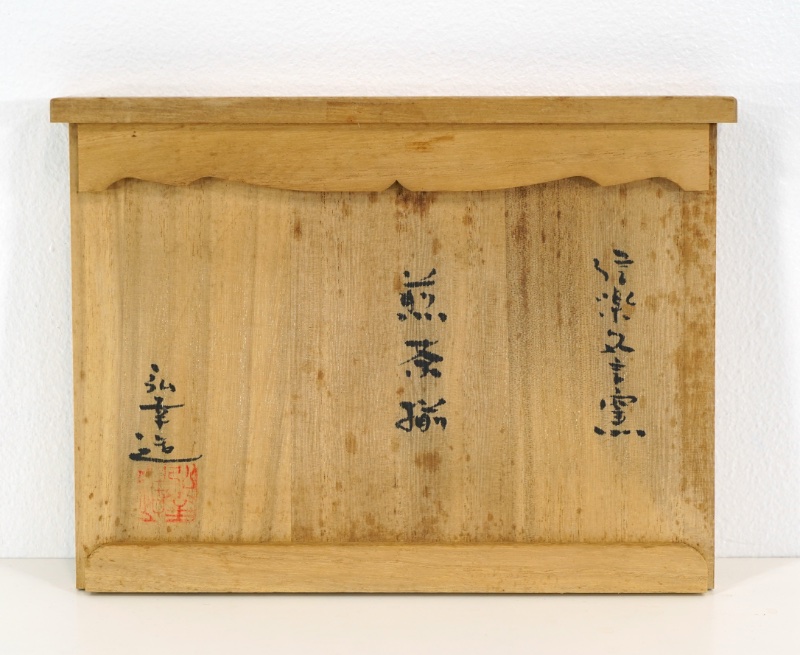 信楽 窯
煎茶揃
弘幸造